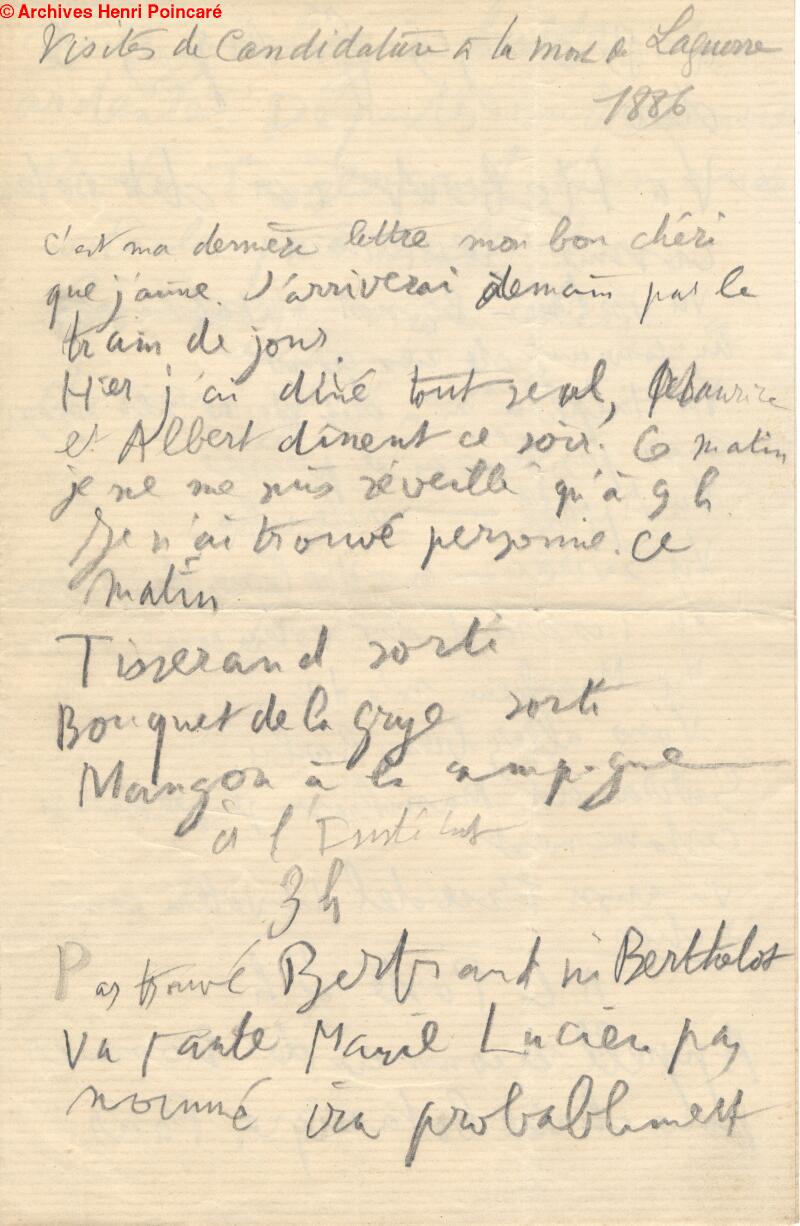 © Archives Henri Poincaré
Visites de Candidature à la mort de Laguerre
1886
C'est ma dernière lettre mon bon chéri
que j'aime. J'arriverai demain par le
train de jour.
Hier j'ai dîné tout seul, Maurice
et Albert dînent ce soir. Ce matin
je ne me suis réveillé qu'à 9 h.
Je n'ai trouvé personne. Ce
matin
Tisserand sorti
Bouquet de la Grye sorti
Mangon à la campagne
à l'Institut
3 h
Pas trouvé Bertrand ni Berthelot
Vu tante Marie Lucien pas
nommé ira probablement